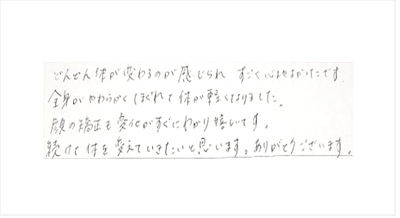 どんどん体が変わるのが感じられ すごく心地よかったです。
全身がやわらかくほぐれて体が軽くなりました。
顔の矯正も変化がすぐにわかり嬉しいです。
続けて体を変えていきたいと思います。ありがとうございます。